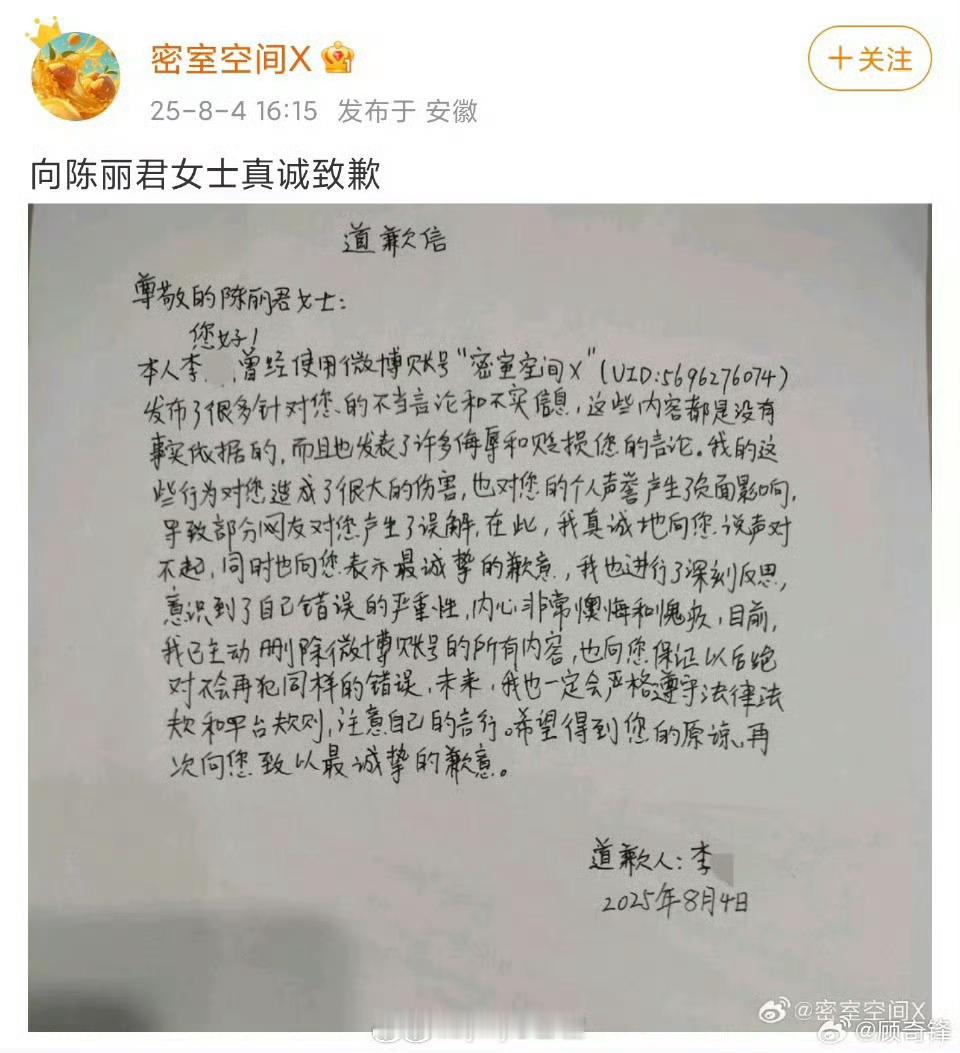 密室空间X
+关注
25-8-4 16:15 发布于 安徽
向陈丽君女士真诚致歉
道歉信
尊敬的陈丽君女士：
您好！
本人李 ,曾经使用微博账号“密室空间X”(UID:5696276074)
发布了很多针对您的不当言论和不实信息，这些内容都是没有
事实依据的，而且也发表了许多侮辱和贬损您的言论。我的这
些行为对您造成了很大的伤害，也对您的个人声誉产生了负面影响，
导致部分网友对您产生了误解，在此，我真诚地向您说声对
不起，同时也向您表示最诚挚的歉意，我也进行了深刻反思，
意识到了自己错误的严重性，内心非常懊悔和愧疚，目前，
我已主动删除微博账号的所有内容，也向您保证以后绝
对不会再犯同样的错误，未来，我也一定会严格遵守法律法
规和平台规则，注意自己的言行。希望得到您的原谅。再
次向您致以最诚挚的歉意。
道歉人：李
2025年8月4日
@密室空间X
@顾奇锋